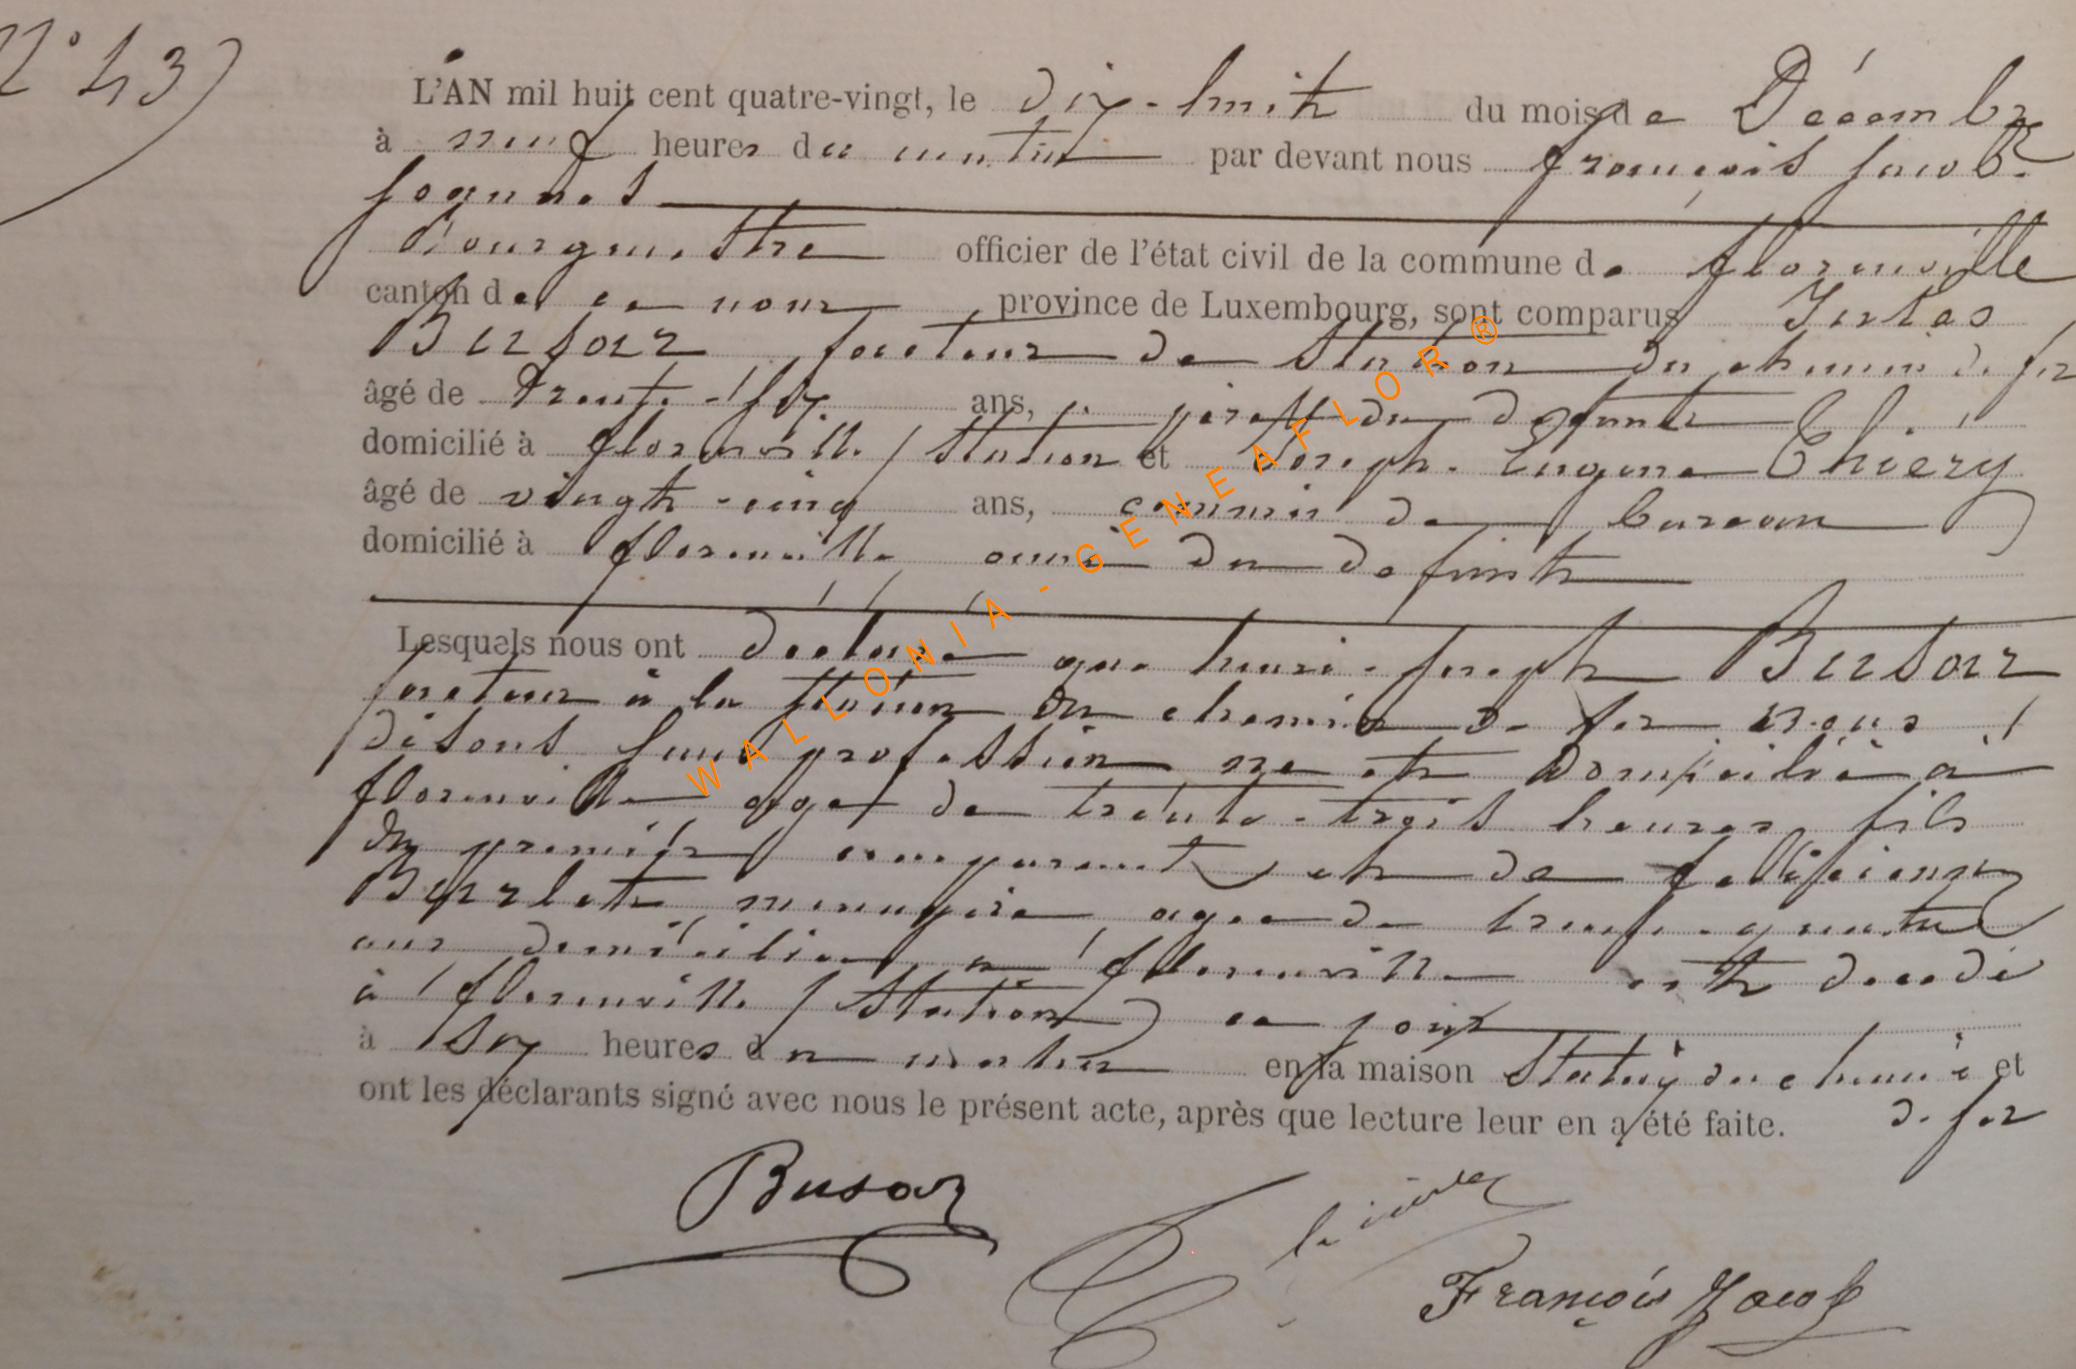 N° 43
L'AN mil huit cent quatre-vingt, le dix-huit du mois de Décembre
à neuf heures du matin par devant nous françois Jacob
bourgmestre officier de l'état civil de la commune de florenville
canton de ce nom province de Luxembourg, sont comparus Jules
Busar facteur de station du chemin de fer
âgé de trente-six ans, père du defunt
domicilié à florenville (Station et Joseph-Eugène Thiery
âgé de vingt-cinq ans, commis de bureau
domicilié à florenville ami du defunt
Lesquels nous ont declaré que henri-Joseph Busar
facteur à la station du chemin de fer nous
disons sans profession né et domicilié à
florenville agé de trente-trois heures fils
du premier comparant et de
Burlet menagère agée de trente-quatre
ans domiciliée à florenville est decedé
à florenville (Station) ce jour
à six heures du matin en la maison Station du chemin et
de fer
ont les déclarants signé avec nous le présent acte, après que lecture leur en a été faite.
Busar
François Jacob
WALLONIA-GENEAFLOR®